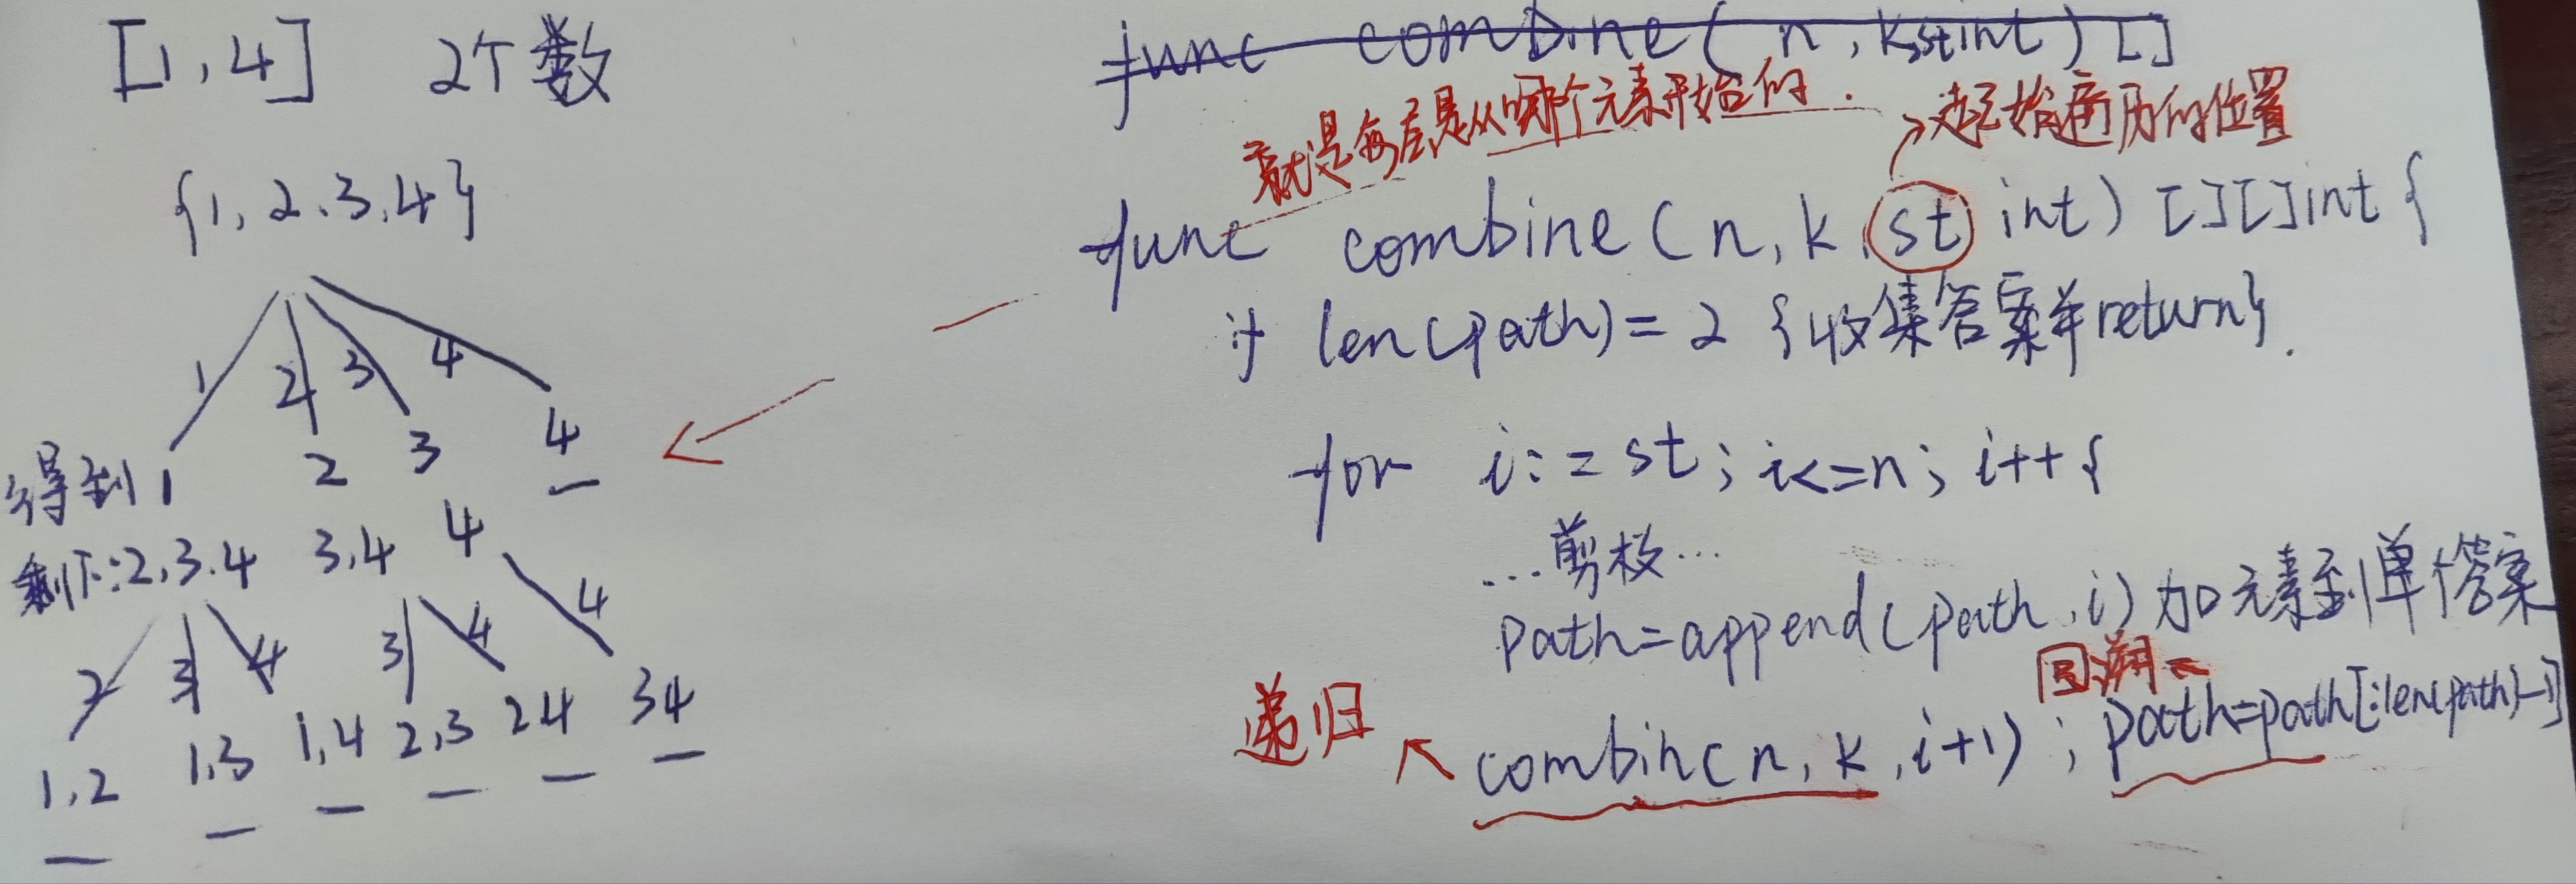 [1,4] 2个数
{1,2,3,4}
1 2 3 4
得到1 2 3 4
剩下:2,3,4 3,4 4
2 3 4 3 4 4
1,2 1,3 1,4 2,3 24 34
func combine(n,k,st int)[]
就是每层是从哪个元素开始的.
起始遍历的位置
func combine(n,k,st int)[][]int{
if len(path)=2 {收集答案并return}.
for i:=st;i<=n;i++{
...剪枝...
path=append(path,i)加元素到单个答案
回溯
递归
combin(n,k,i+1);path=path[:len(path)-1]